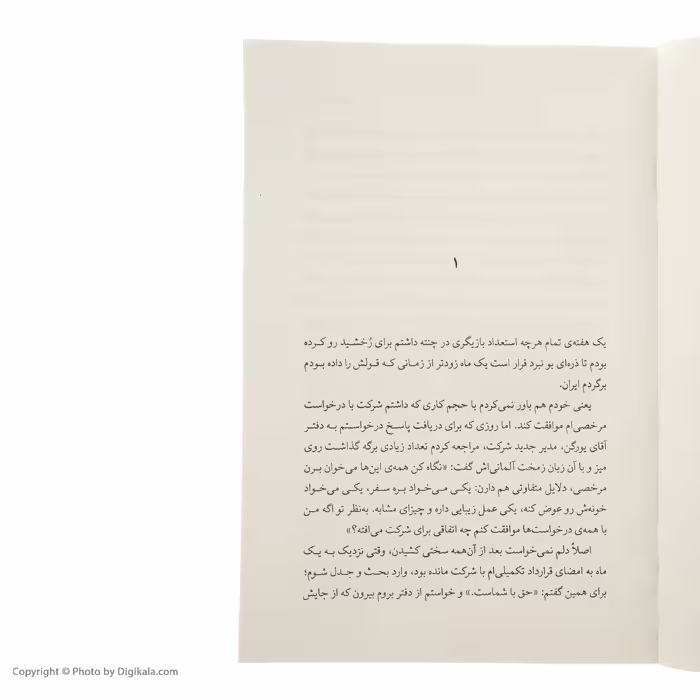 ۱
یک هفته‌ی تمام هرچه استعداد بازیگری در چنته داشتم برای رُخشید رو کرده
بودم تا ذره‌ای بو نبرد قرار است یک ماه زودتر از زمانی که قولش را داده بودم
برگردم ایران.
یعنی خودم هم باور نمی‌کردم با حجم کاری که داشتم شرکت با درخواست
مرخصی‌ام موافقت کند. اما روزی که برای دریافت پاسخ درخواستم به دفتر
آقای یورگن، مدیر جدید شرکت، مراجعه کردم تعداد زیادی برگه گذاشت روی
میز و با آن زبان زمخت آلمانی‌اش گفت: «نگاه کن همه‌ی این‌ها می‌خوان برن
مرخصی، دلایل متفاوتی هم دارن: یکی می‌خواد بره سفر، یکی می‌خواد
خونه‌ش رو عوض کنه، یکی عمل زیبایی داره و چیزای مشابه. به‌نظر تو اگه من
با همه‌ی درخواست‌ها موافقت کنم چه اتفاقی برای شرکت می‌افته؟»
اصلاً دلم نمی‌خواست بعد از آن‌همه سختی کشیدن، وقتی نزدیک به یک
ماه به امضای قرارداد تکمیلی‌ام با شرکت مانده بود، وارد بحث و جدل شوم؛
برای همین گفتم: «حق با شماست.» و خواستم از دفتر بروم بیرون که از جایش
Copyright © Photo by Digikala.com